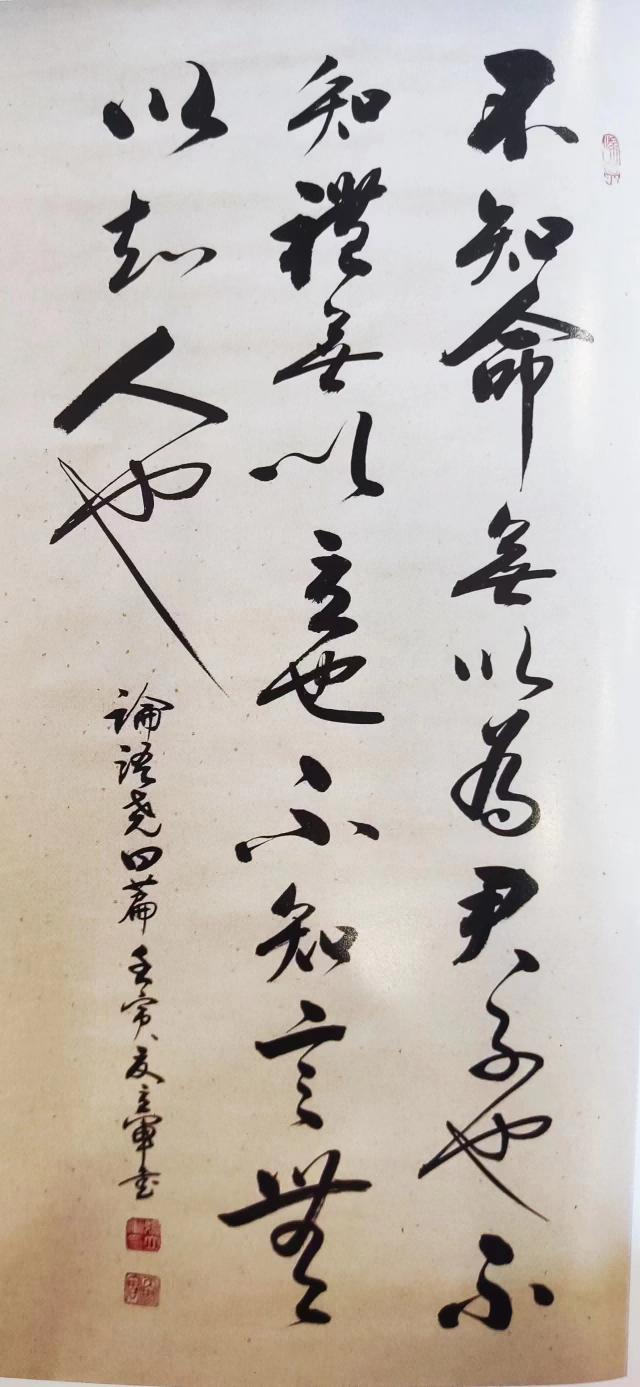 不知命無以為君子也不
知禮無以立也不知言無
以知人也
論語堯曰篇 壬寅夏立軍書